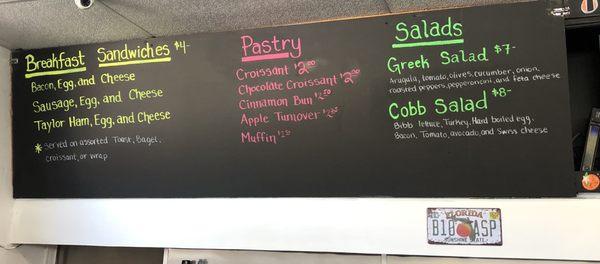 Breakfast Sandwiches $4-
Bacon, Egg, and Cheese
Sausage, Egg, and Cheese
Taylor Ham, Egg, and Cheese
* Served on assorted Toast, Bagel,
croissant, or wrap
Pastry
Croissant $2.00
Chocolate Croissant $2.50
Cinnamon Bun $2.50
Apple Turnover $2.25
Muffin $2.50
Salads
Greek Salad $7-
Arugula, tomato, olives, cucumber, onion,
roasted peppers, pepperoncini, and feta cheese
Cobb Salad $8-
Bibb lettuce, Turkey, Hard boiled egg,
Bacon, Tomato, avocado, and Swiss cheese
FLORIDA
B10 ASP
SUNSHINE STATE